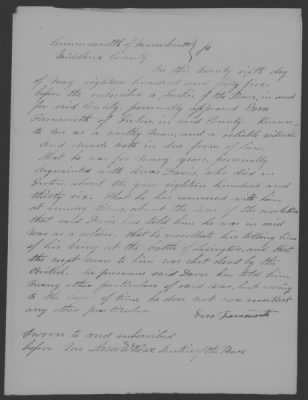 Commonwealth of Massachusetts } ss
Middlesex County
On this twenty sixth day
of May eighteen hundred and forty five
before the subscriber a Justice of the Peace, in and
for said County, personally appeared Ezra
Farnsworth of Groton in said County. Known
to me as a worthy man, and a reliable witness
And made oath in due form of law.
That he was for many years, personally
Acquainted with Amos Davis, who died in
Groton, about the year eighteen hundred and
thirty six. That he has conversed with him
at various times, about the war of the revolution
that said Davis has told him he was in said
war as a soldier. that he recollect his telling him
of his being at the battle of Lexington, and that
the next man to him was shot dead by the
British. he presumes said Davis has told him
many other particulars of said war, but owing
to the lapse of time he does not now recollect
any other particular.
Ezra Farnsworth
Sworn to and subscribed
before me Justice of the Peace